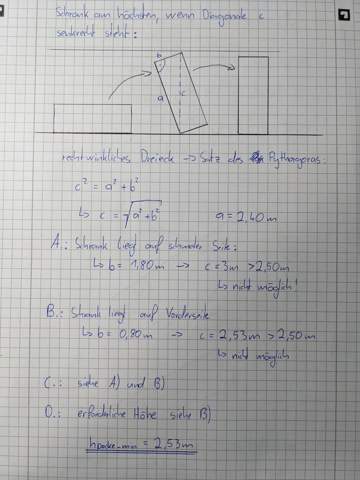 Schrank am höchsten, wenn Diagonale c
senkrecht steht:
b
a
c
rechtwinkliches Dreieck → Satz des Pythagoras:
c² = a² + b²
↳ c = √a² + b²   a = 2,40 m
A.: Schrank liegt auf schmaler Seite:
↳ b = 1,80 m → c = 3m > 2,50 m
↳ nicht möglich!
B.: Schrank liegt auf Vorderseite
↳ b = 0,80 m → c = 2,53 m > 2,50 m
↳ nicht möglich
C.: siehe A) und B)
D.: erforderliche Höhe siehe B)
h = 2,53 m